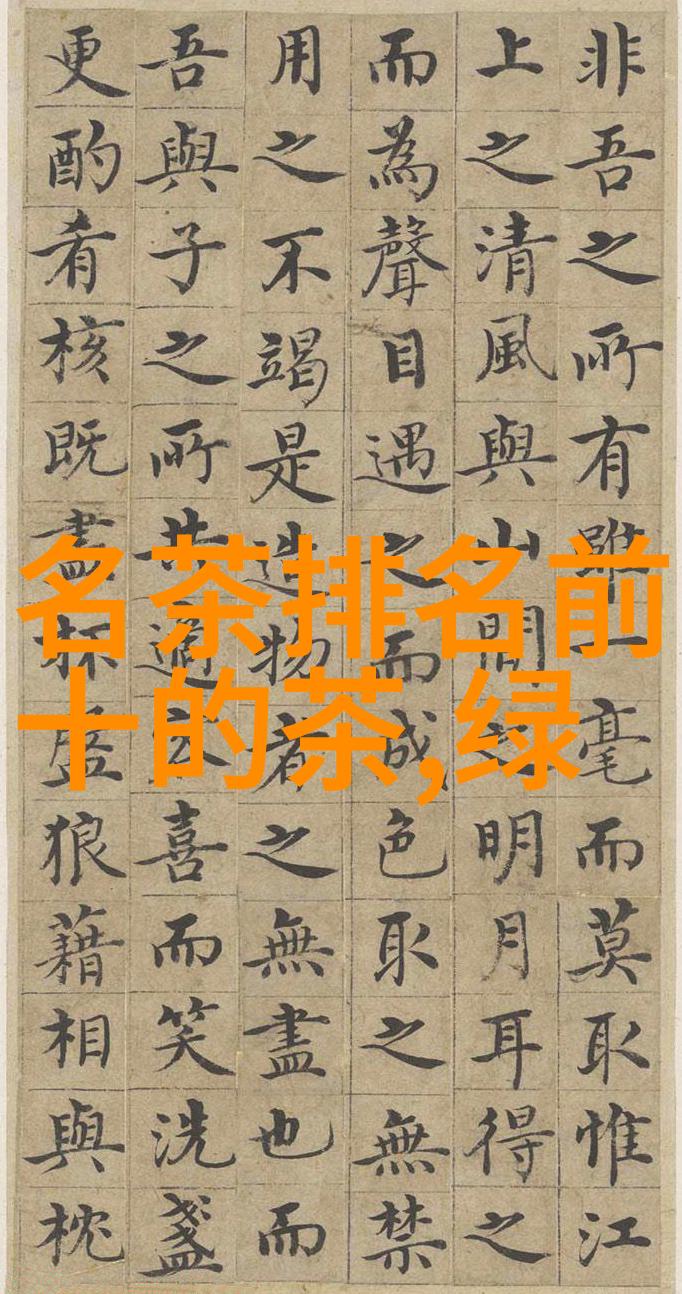 非吾之所有雖一毫而莫取惟江
上之清風與山間之明月耳得之
而為聲目遇之而成色取之無禁
用之不竭是造物者之無盡也而
吾與子之所共適客喜而笑洗盞
更酌肴核既盡杯盤狼藉相與枕
名茶排名前
十的茶,绿